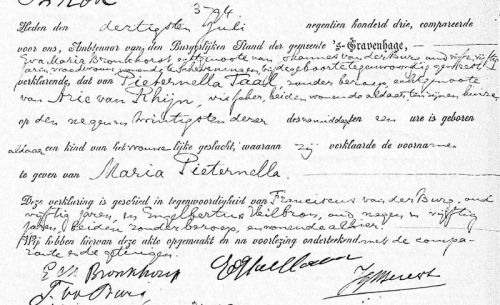 3794
Heden den dertigsten Juli negentien honderd drie, compareerde
voor ons, Ambtenaar van den Burgerlijken Stand der gemeente 's-Gravenhage,
Eva Maria Bronkhorst echtgenoote van Johannes van der Burg, oud vijf en vijftig
jaren, vroedvrouw, wonende te Scheveningen, bij de geboorte tegenwoordig geweest
verklarende, dat van Pieternella Taal, zonder beroep, echtgenoote
van Arie van Rhijn, visscher, beiden wonende aldaar, ten zijnen huize
op den negen en twintigsten dezer des namiddags ten een ure is geboren
aldaar een kind van het vrouwelijke geslacht, waaraan zij verklaarde de voornamen
te geven van Maria Pieternella.
Deze verklaring is geschied in tegenwoordigheid van Franciscus van der Burg, oud
vijftig jaren, en Engelbertus Heilbron, oud negen en vijftig
jaren, beiden zonder beroep, en wonende alhier.
Wij hebben hiervan deze akte opgemaakt en na voorlezing onderteekend met de compa-
rante en de getuigen.
E M Bronkhorst
F. vd Burg